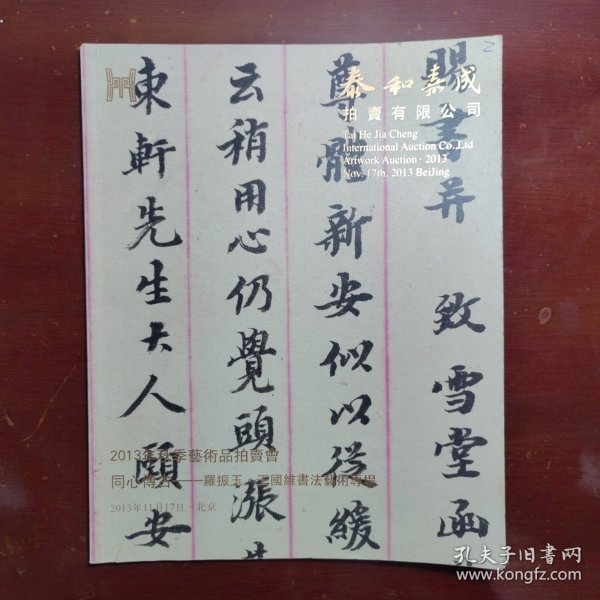 泰和嘉成
拍賣有限公司
Tai He Jia Cheng
International Auction Co.,Ltd
Artwork Auction · 2013
Nov. 17th, 2013 BeiJing
賜書并 致雪堂函
尊體新安似以從緩
云稍用心仍覺頭漲
東軒先生大人頤安
2013年秋季藝術品拍賣會
同心傳古——羅振玉、王國維書法藝術專場
2013年11月17日 北京
孔夫子旧书网
www.kongfz.com